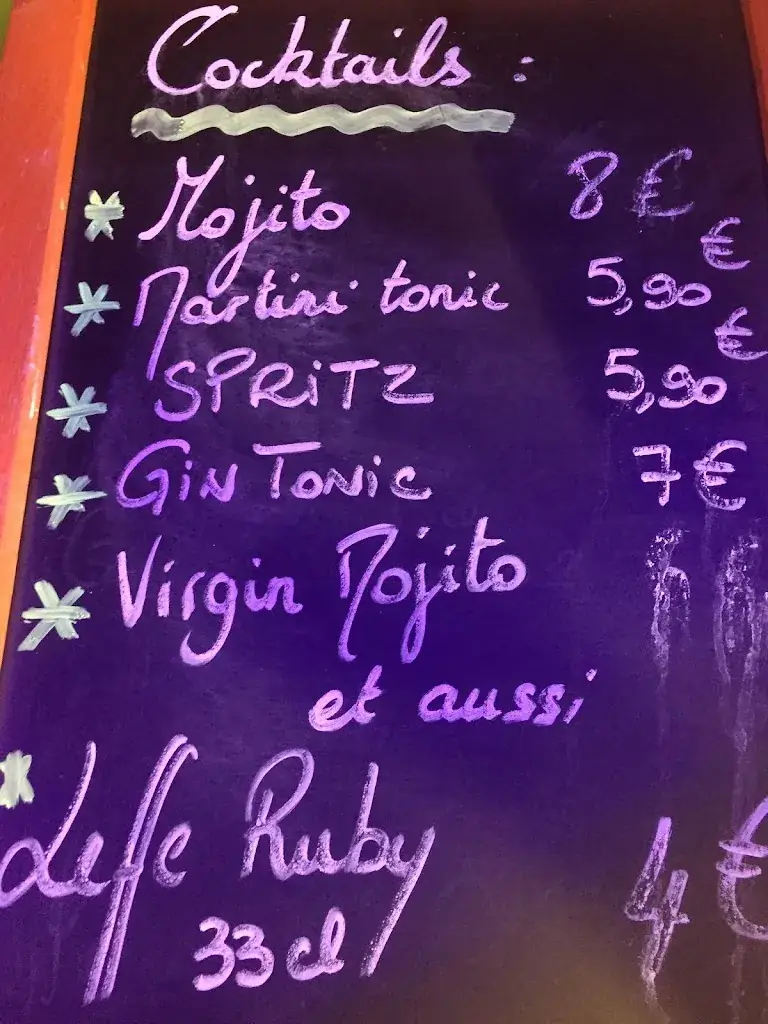 Cocktails :
* Mojito 8 €
* Martini tonic 5,90 €
* SPRiTZ 5,90 €
* GiN TONic 7 €
* Virgin Mojito
et aussi
* Leffe Ruby 4 €
33 cl